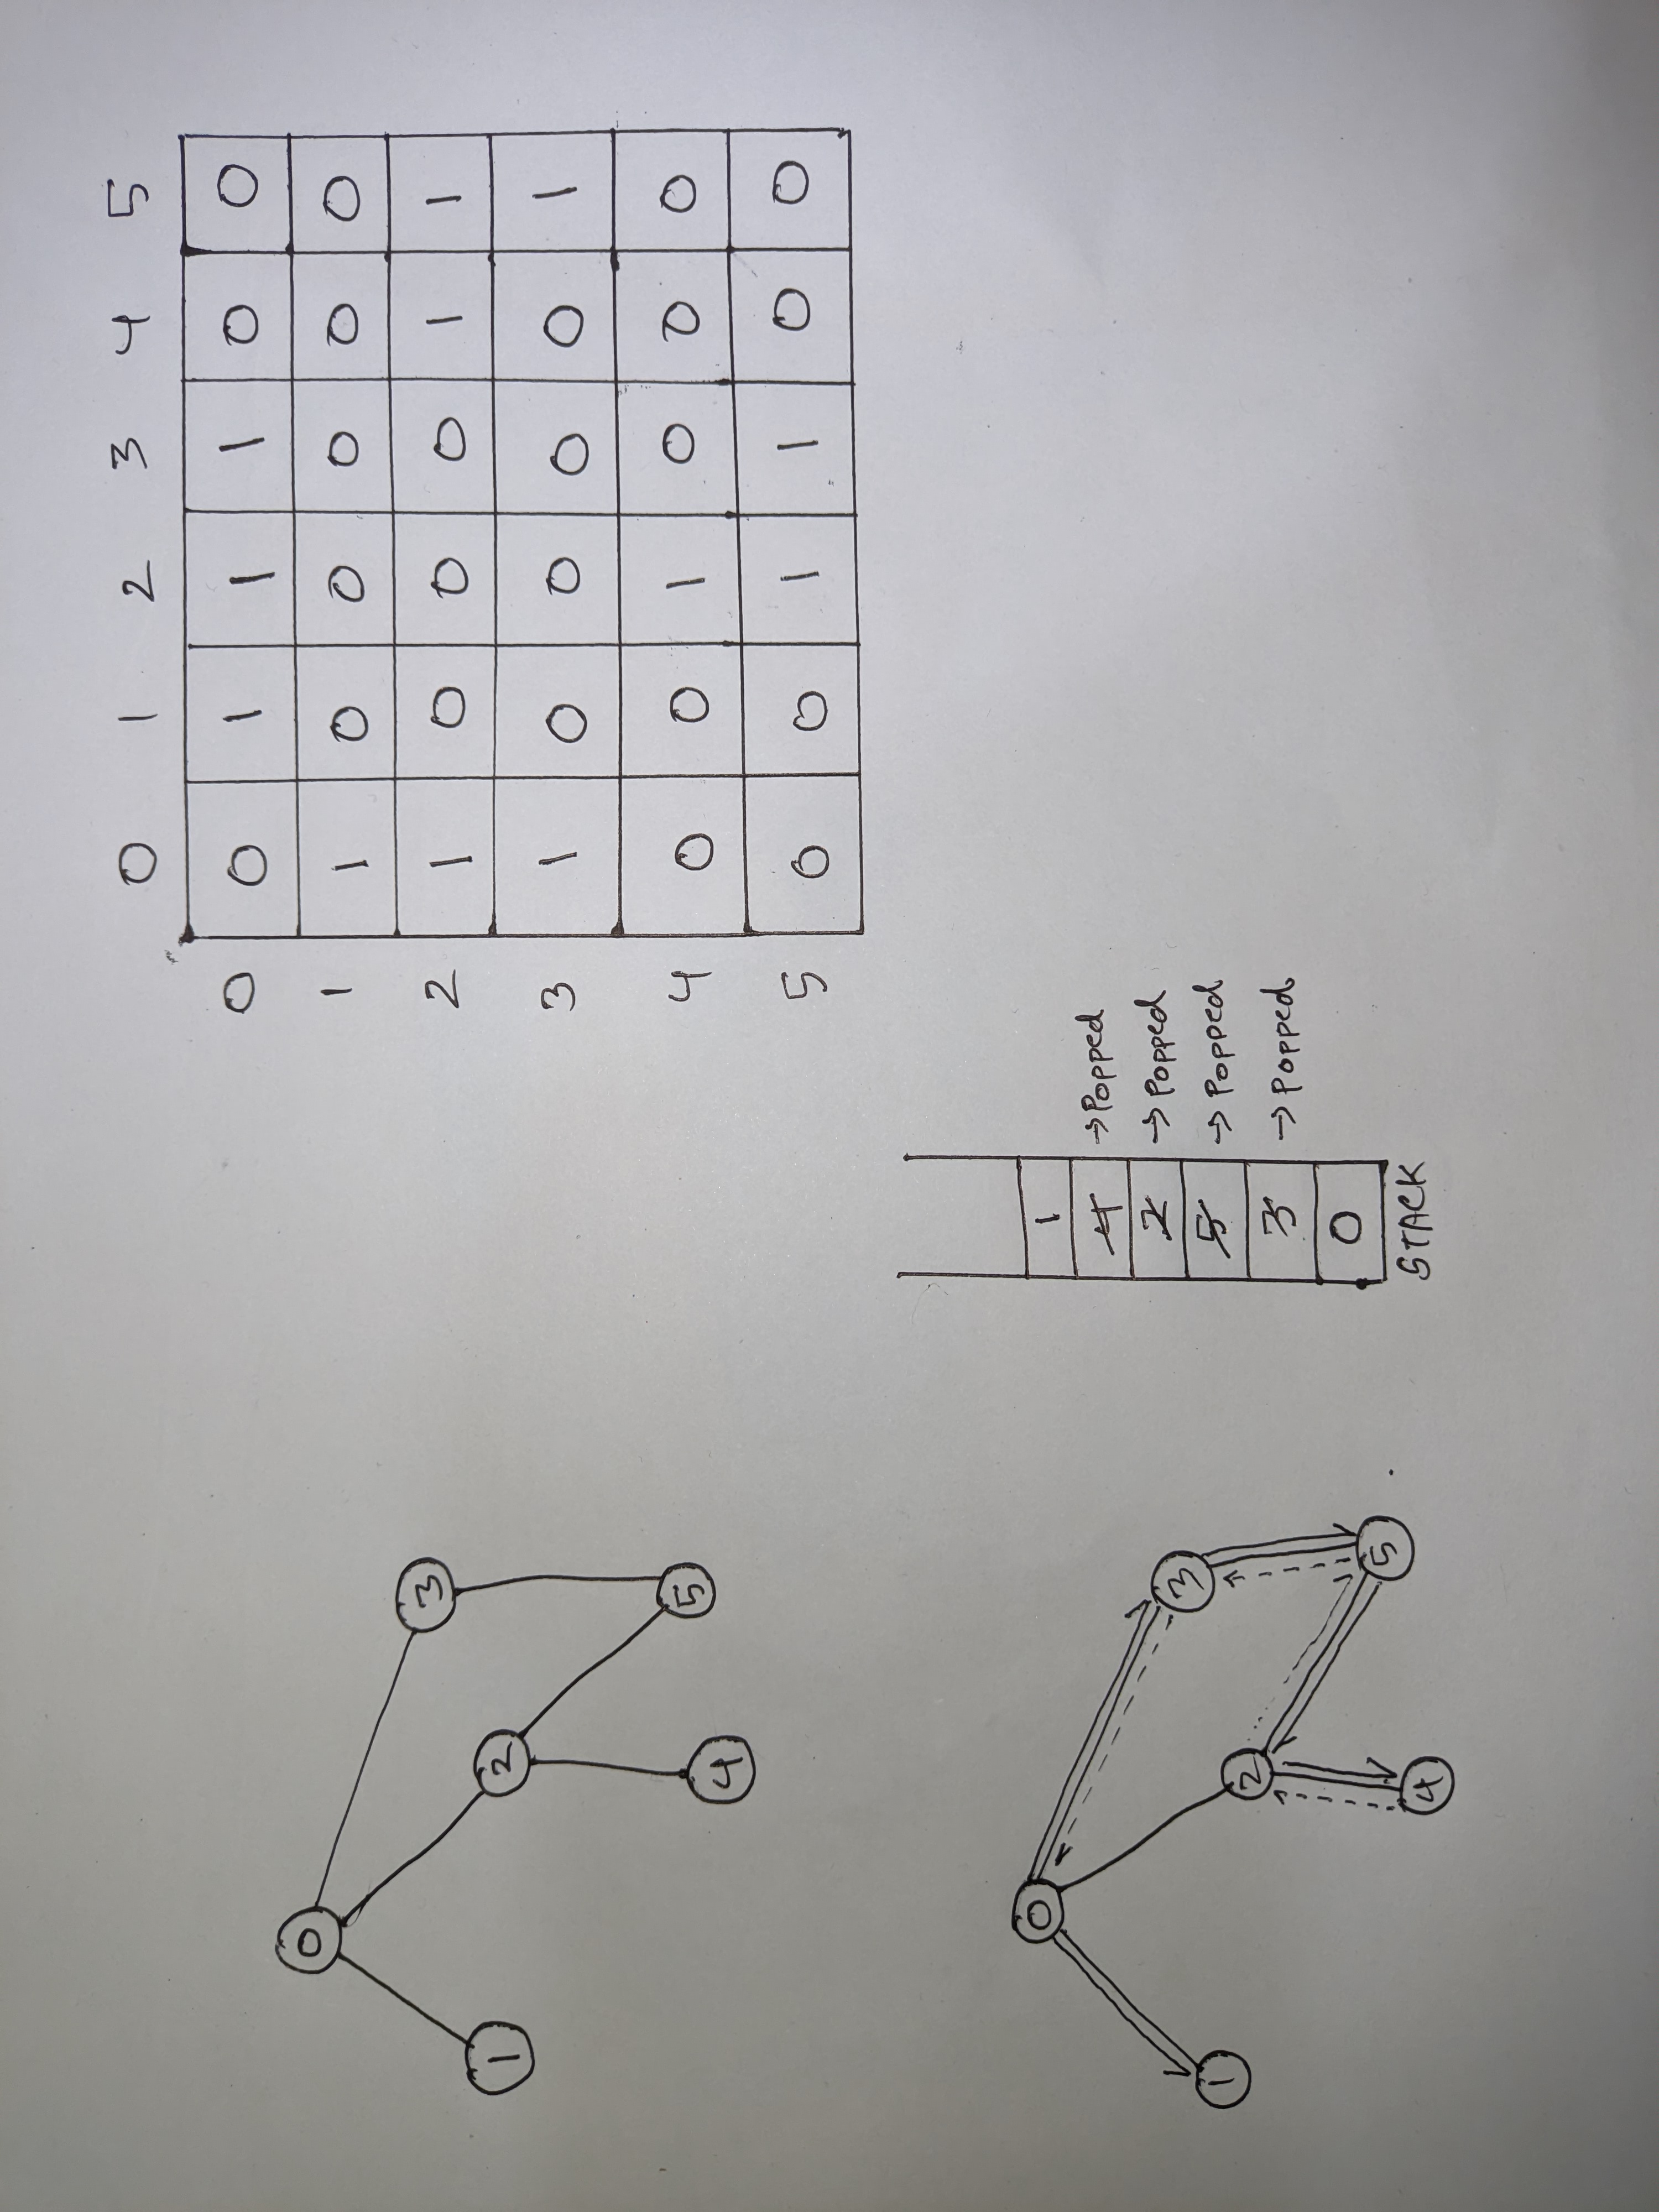 0
3
1
2
5
4
0 1 2 3 4 5
0 0 1 1 1 0 0
1 1 0 0 0 0 0
2 1 0 0 0 1 1
3 1 0 0 0 0 1
4 0 0 1 0 0 0
5 0 0 1 1 0 0
0
3
1
2
5
4
1
4 → Popped
2 → Popped
5 → Popped
3 → Popped
0
STACK